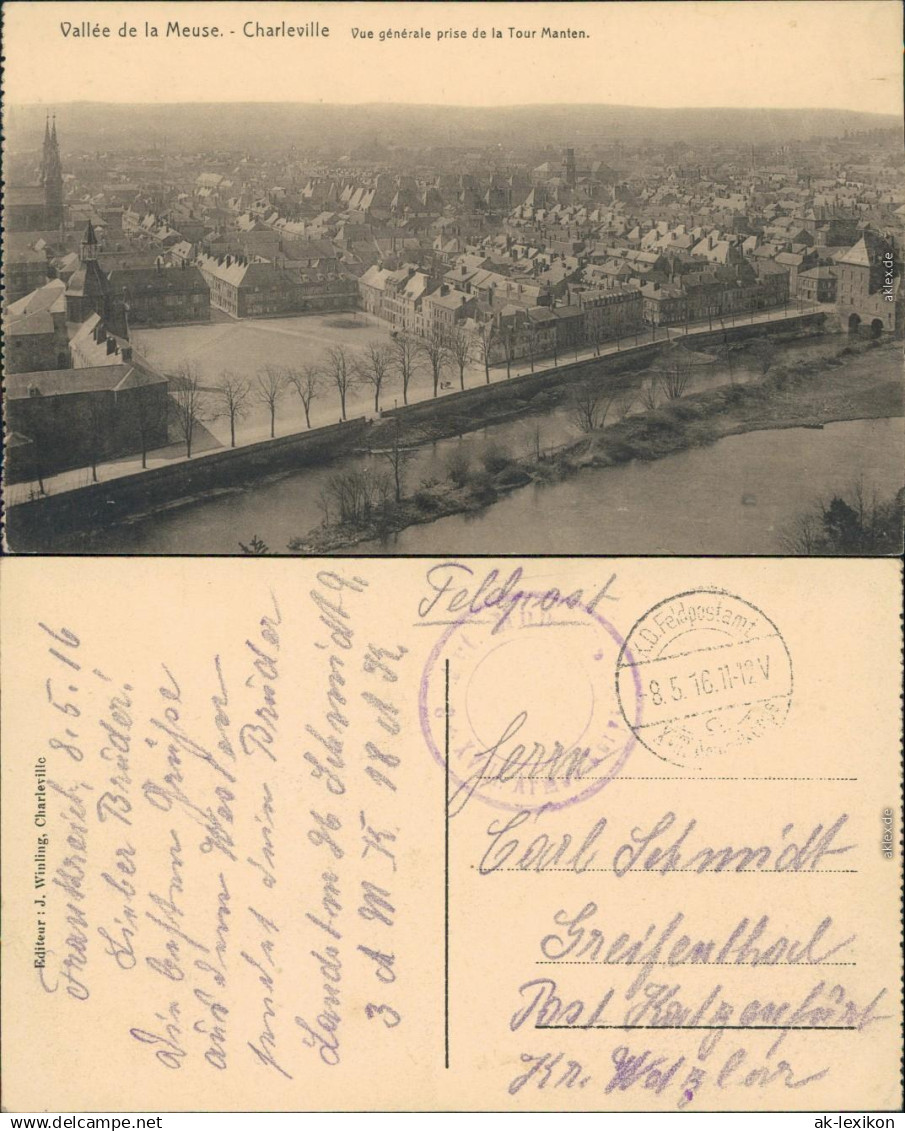 Vallée de la Meuse. - Charleville Vue générale prise de la Tour Manten.
aklex.de
Editeur : J. Winling, Charleville
Frankreich, 8.5.16
Lieber Brüder!
Die besten Grüße
aus dem Westen
sendet dein Bruder
Landstm H Schmidt 9.
3 A M K 18 A K.
Feldpost
K.D. Feldpostamt
8.5.16.11-12V
Herrn
Carl Schmidt
Greifenthal
Post Katzenfurt
Kr. Wetzlar
aklex.de
ak-lexikon
www.ak-lexikon.de